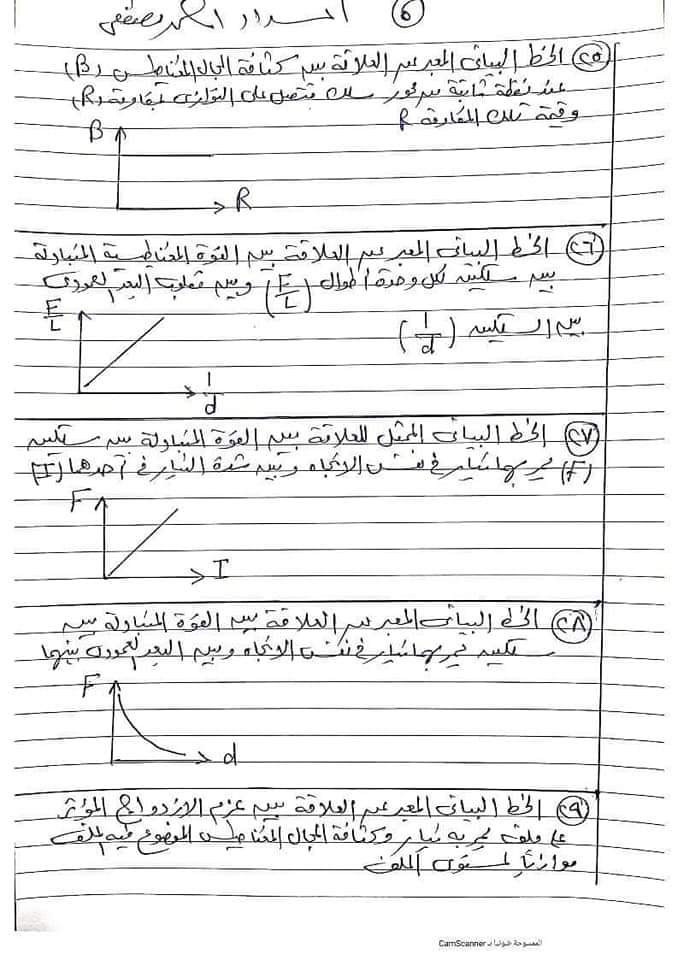 ٦
(٢٥) الخط البيانى المعبر عن العلاقة بين كثافة المجال المغناطيسى (B)
عند نقطة ثابتة من محور سلك متصل على التوازى بمقاومة (R)
وقيمة تلك المقاومة R
B
R
(٢٦) الخط البيانى المعبر عن العلاقة بين القوة المغناطيسية المتبادلة
بين سلكين لكل وحدة أطوال (F/L) وبين مقلوب البعد العمودى
بين السلكين (1/d)
F/L
1/d
(٢٧) الخط البيانى الممثل للعلاقة بين القوة المتبادلة بين سلكين
(F) يمر بهما تيار فى نفس الاتجاه وبين شدة التيار فى أحدهما (I)
F
I
(٢٨) الخط البيانى المعبر عن العلاقة بين القوة المتبادلة بين
سلكين يمر بهما تيار فى نفس الاتجاه وبين البعد العمودى بينهما
F
d
(٢٩) الخط البيانى المعبر عن العلاقة بين عزم الازدواج المؤثر
على ملف يمر به تيار وكثافة المجال المغناطيسى الموضوع فيه الملف
موازياً لمستوى الملف
الممسوحة ضوئيا بـ CamScanner